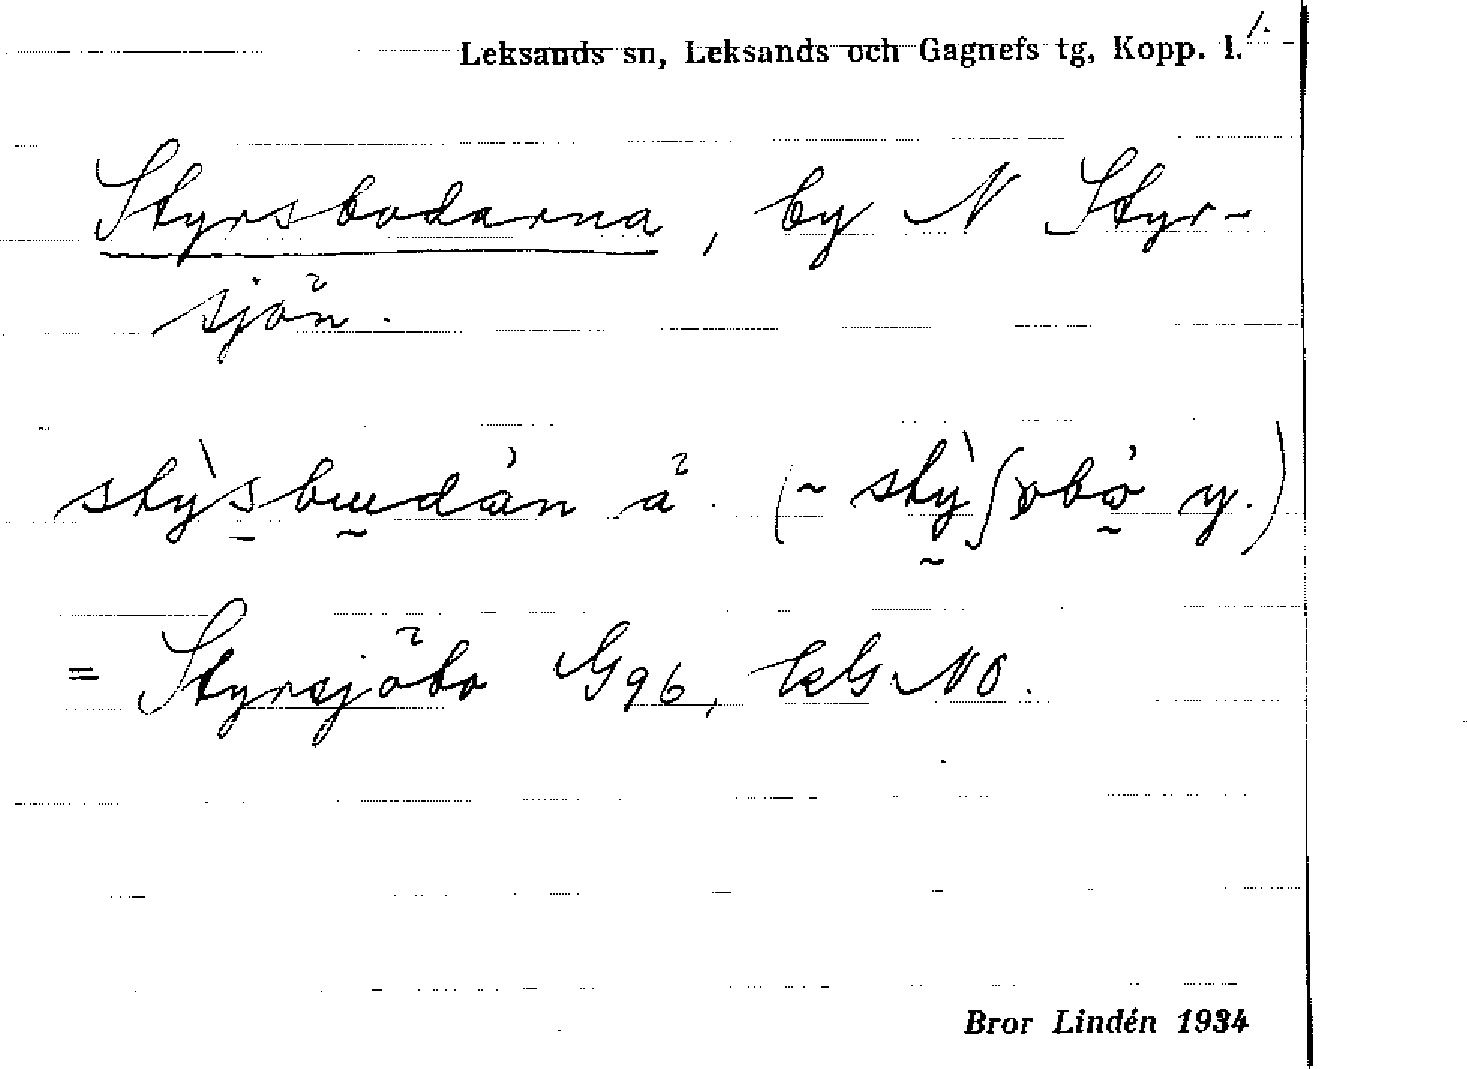 Leksands sn, Leksands och Gagnefs tg, Kopp. l. 1.
Styrsbodarna, by N Styr-
sjön.
stỳsbɯdàn å. (~ stỳʃobò y.)
= Styrsjöbo G96, kG NO.
Bror Lindén 1934